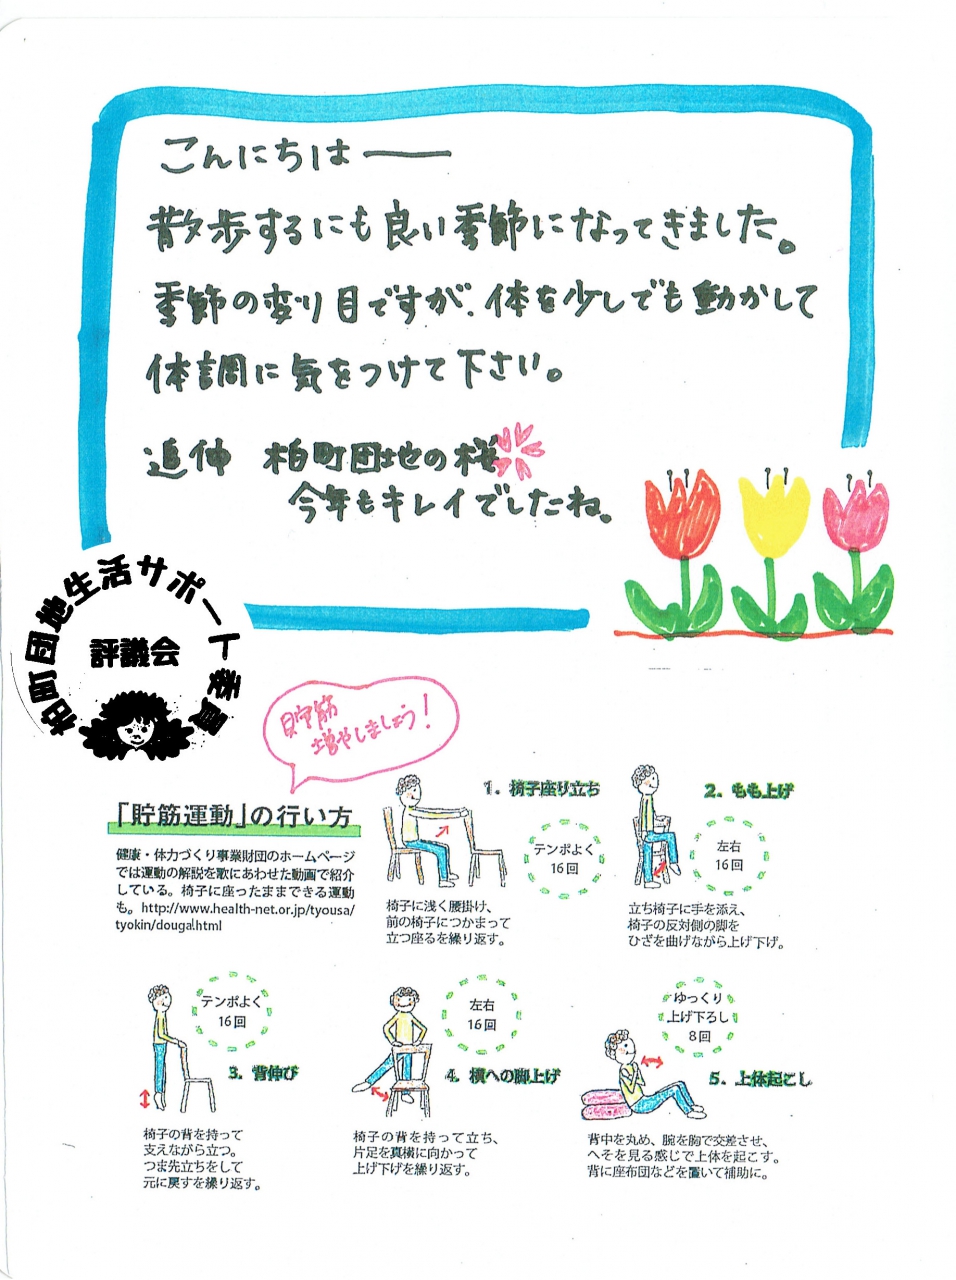 こんにちは――
散歩するにも良い季節になってきました。
季節の変り目ですが、体を少しでも動かして
体調に気をつけて下さい。
追伸 柏町団地の桜
今年もキレイでしたね。
柏町団地生活サポート委員
評議会
貯筋
増やしましょう!
「貯筋運動」の行い方
健康・体力づくり事業財団のホームページ
では運動の解説を歌にあわせた動画で紹介
している。椅子に座ったままできる運動
も。http://www.health-net.or.jp/tyousa/
tyokin/douga.html
1. 椅子座り立ち
テンポよく
16回
椅子に浅く腰掛け、
前の椅子につかまって
立つ座るを繰り返す。
2. もも上げ
左右
16回
立ち椅子に手を添え、
椅子の反対側の脚を
ひざを曲げながら上げ下げ。
テンポよく
16回
3. 背伸び
椅子の背を持って
支えながら立つ。
つま先立ちをして
元に戻すを繰り返す。
左右
16回
4. 横への脚上げ
椅子の背を持って立ち、
片足を真横に向かって
上げ下げを繰り返す。
ゆっくり
上げ下ろし
8回
5. 上体起こし
背中を丸め、腕を胸で交差させ、
へそを見る感じで上体を起こす。
背に座布団などを置いて補助に。